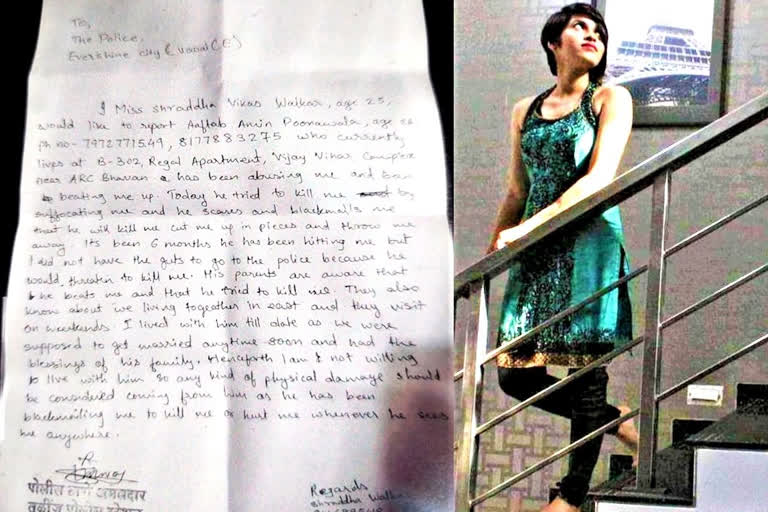 To,
The Police,
Evershine city (Vasai (E)
I Miss Shraddha Vikas Walkar, age 25,
would like to report Aaftab Amin Poonawala, age 26
ph no- 7972771549, 8177883275 who currently
lives at B-302, Regal Apartment, Vijay Vihar Complex
near ARC Bhavan has been abusing me and
beating me up. Today he tried to kill me by
suffocating me and he scares and blackmails me
that he will kill me cut me up in pieces and throw me
away. Its been 6 months he has been hitting me but
I did not have the guts to go to the police because he
would threten to kill me. His parents are aware that
he beats me and that he tried to kill me. They also
know about we living together in east and they visit
on weekends. I lived with him till date as we were
supposed to get married anytime soon and had the
blessings of his family. Henceforth I am not willing
to live with him so any kind of physical damage should
be considered coming from him as he has been
blackmailing me to kill me or hurt me whenever he sees
me anywhere.
पोलीस ठाणे अंमलदार
तुळींज पोलीस
Regards
Shraddha Walkar